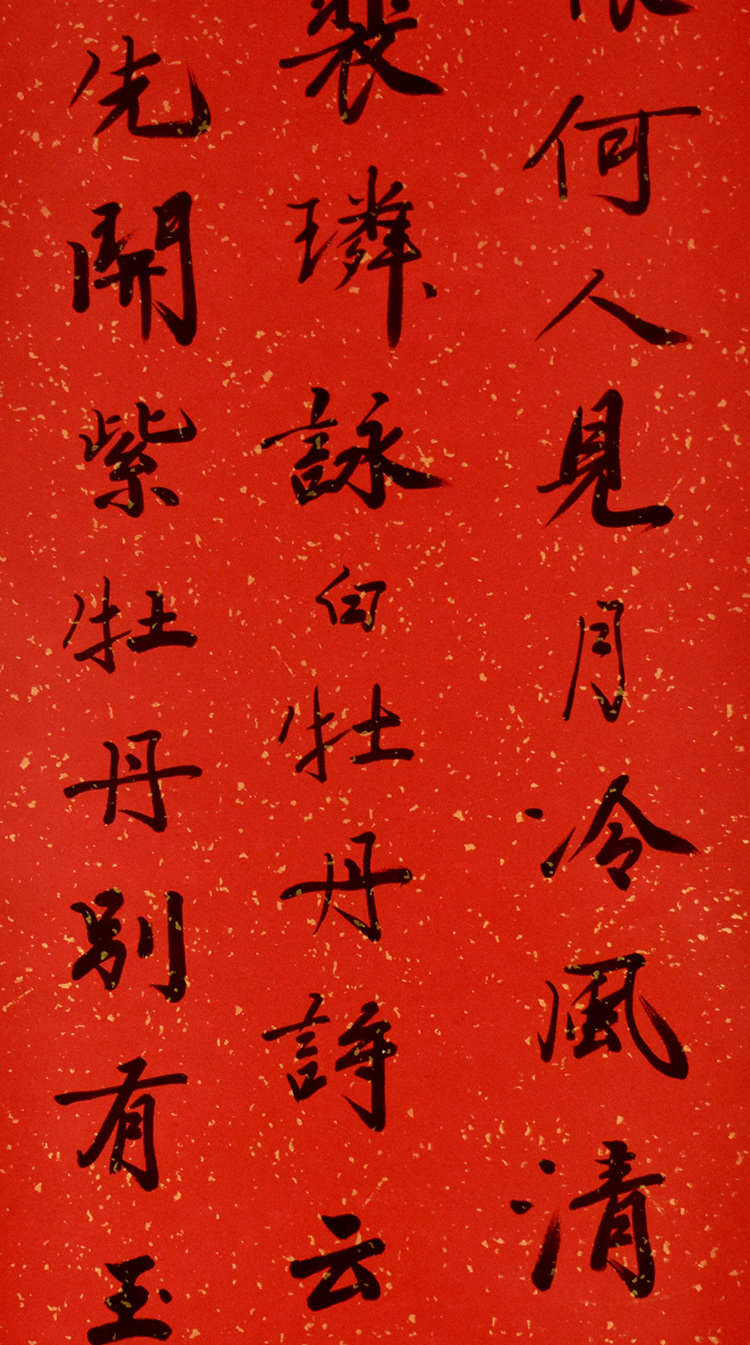 何人見月冷風清
裴璘詠白牡丹詩云
先開紫牡丹別有玉